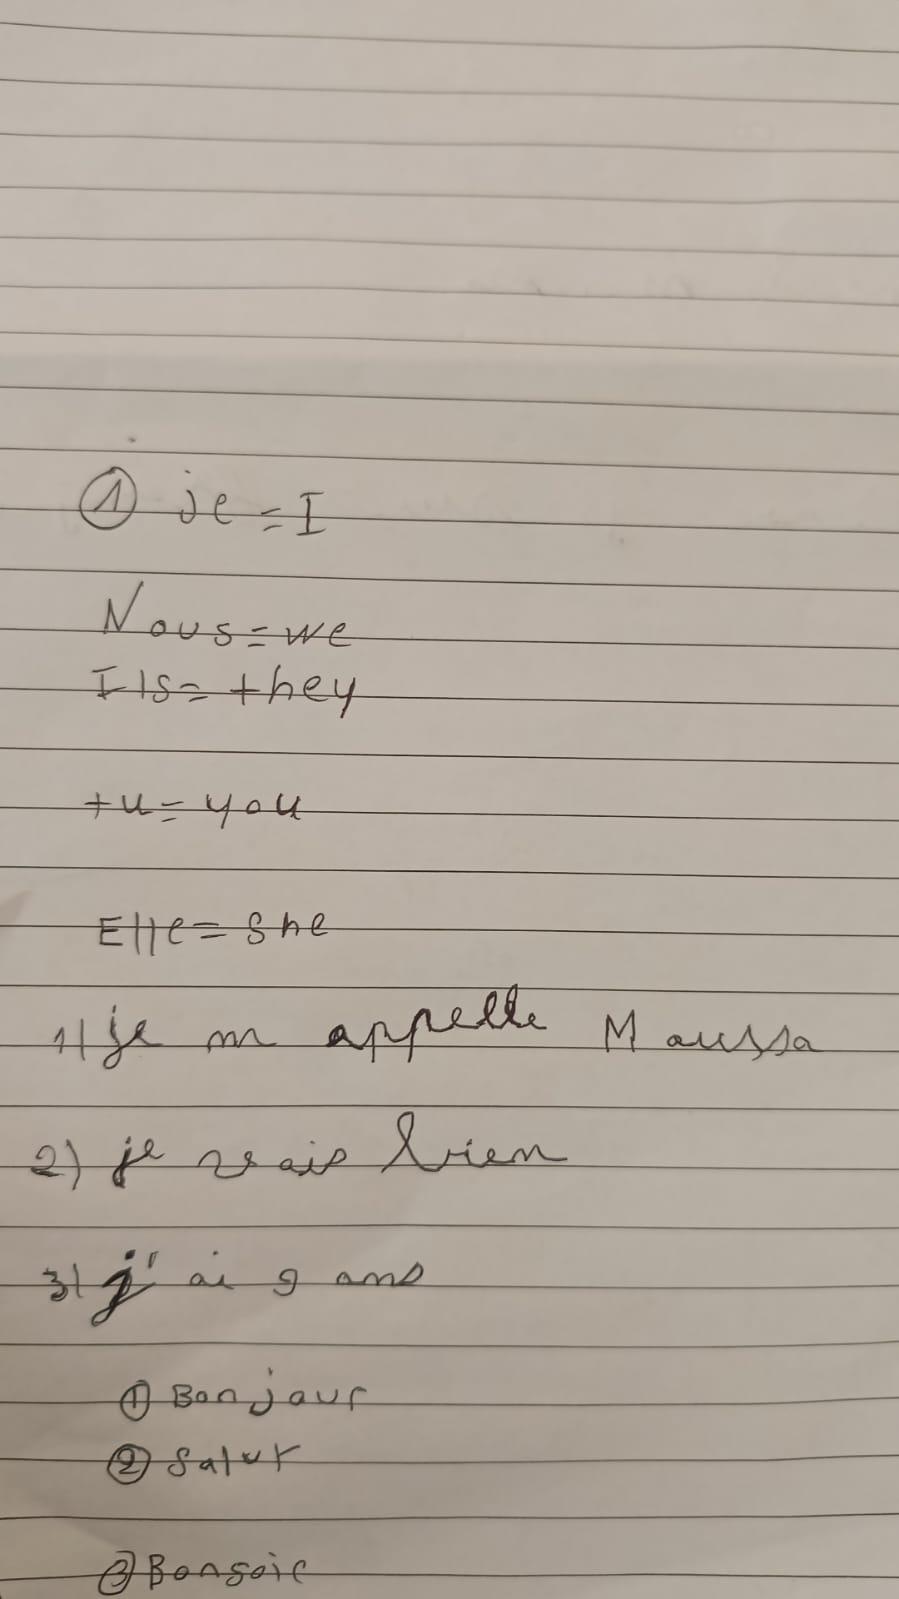 ① je = I
Nous = we
Ils = they
tu = you
Elle = she
1) je m appelle Moussa
2) je vais bien
3) j' ai 9 ans
① Bonjour
② Salut
③ Bonsoir